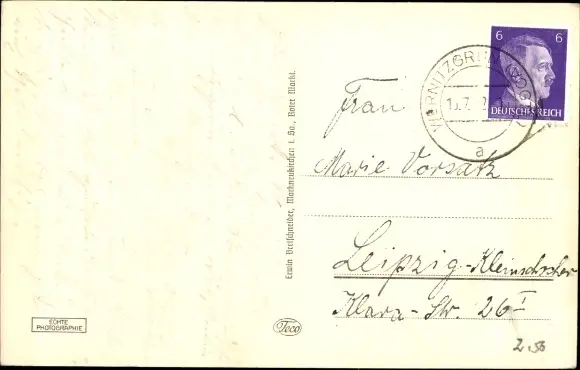 6 6
DEUTSCHES REICH
WERNITZGRÜN (VOGTL)
a
Frau
Marie Vorsatz
Leipzig-Kleinzschocher
Klara-Str. 26 I
Erwin Bretschneider, Markneukirchen i. Sa., Roter Markt.
ECHTE
PHOTOGRAPHIE
Teco
2.50